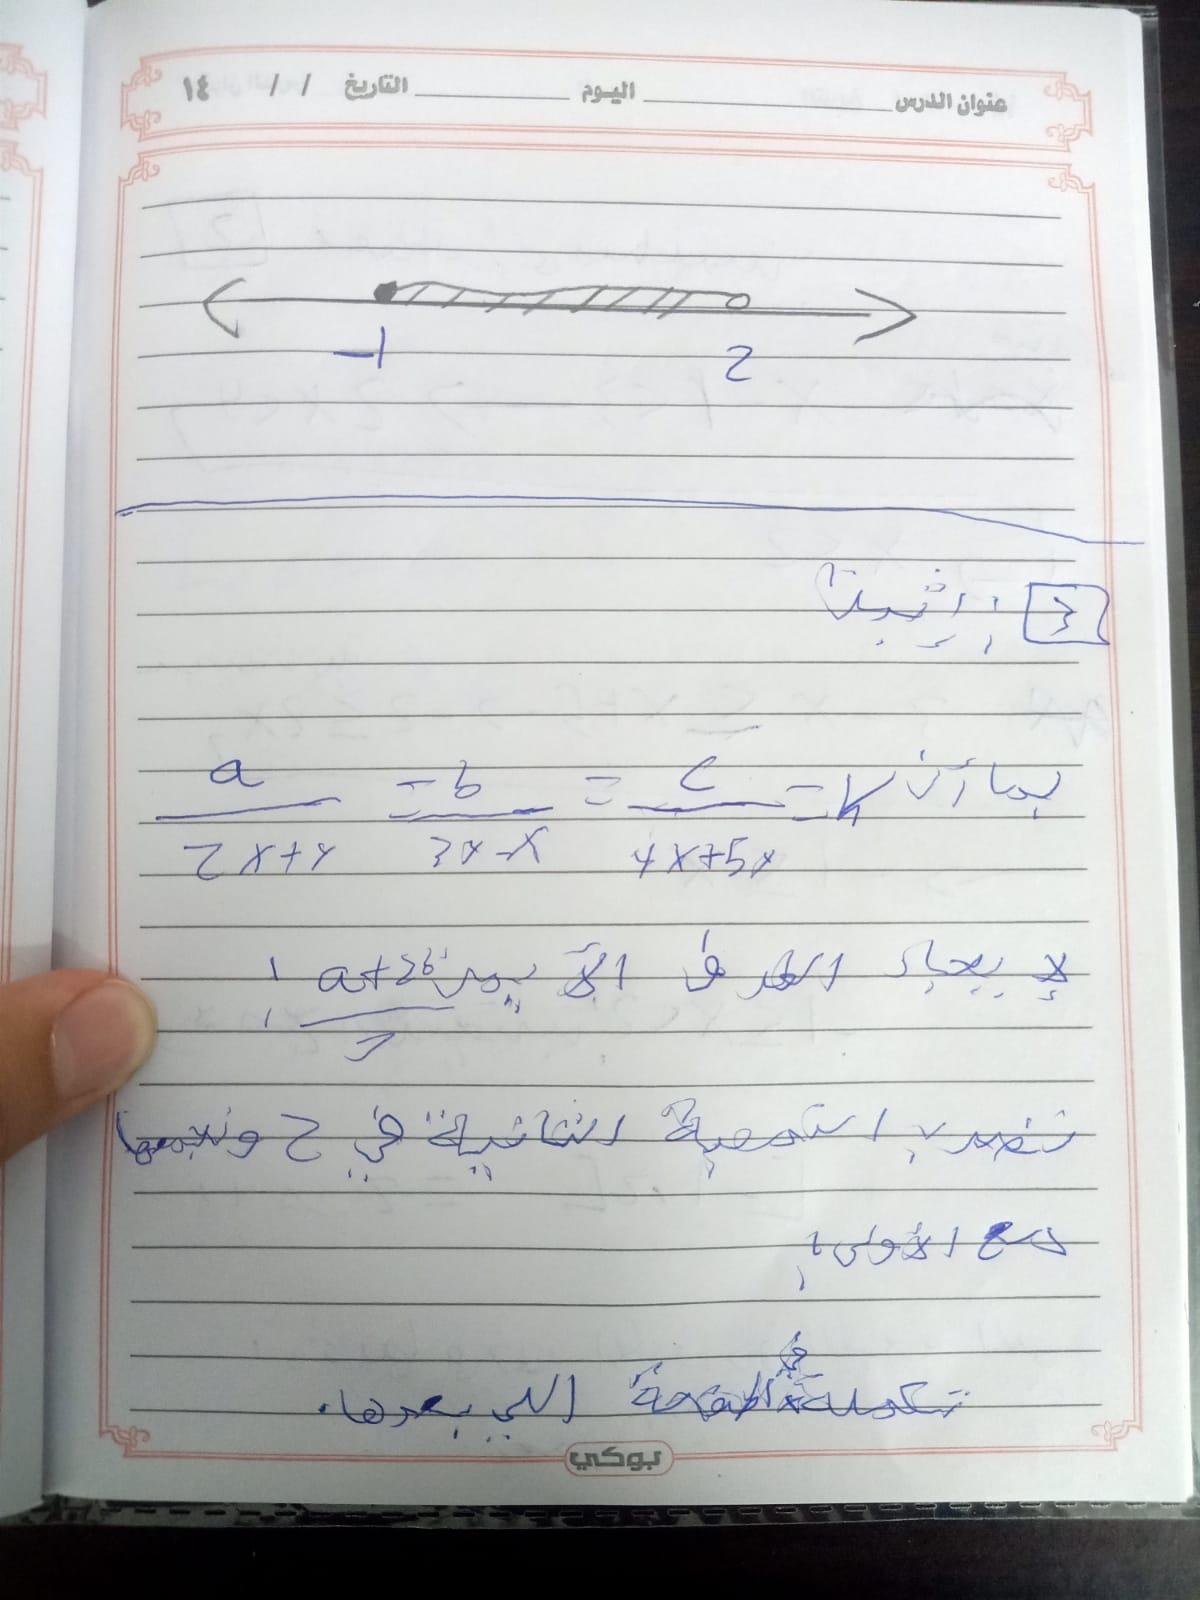 عنوان الدرس اليوم التاريخ / / ١٤
-1 2
3 إثبات
بما أن a/2x+y = b/3y-x = c/4x+5y = K
لإيجاد الطرف الأيمن a+2b/c :
نضرب النسبة الثانية في 2 ونجمعها
مع الأولى:
تكملة في الصفحة اللي بعدها.
بوكي